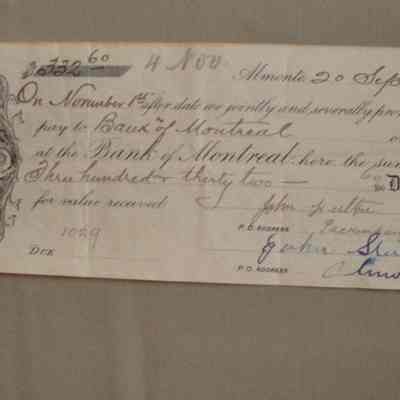 $332 60 4 Nov Almonte 20 Sep
On November 1st after date we jointly and severally pro
pay to Bank of Montreal
at the Bank of Montreal here the sum
Three hundred & thirty two — 60 D
for value received John
1029 P.O. ADDRESS Pakenham
John
DUE P.O. ADDRESS